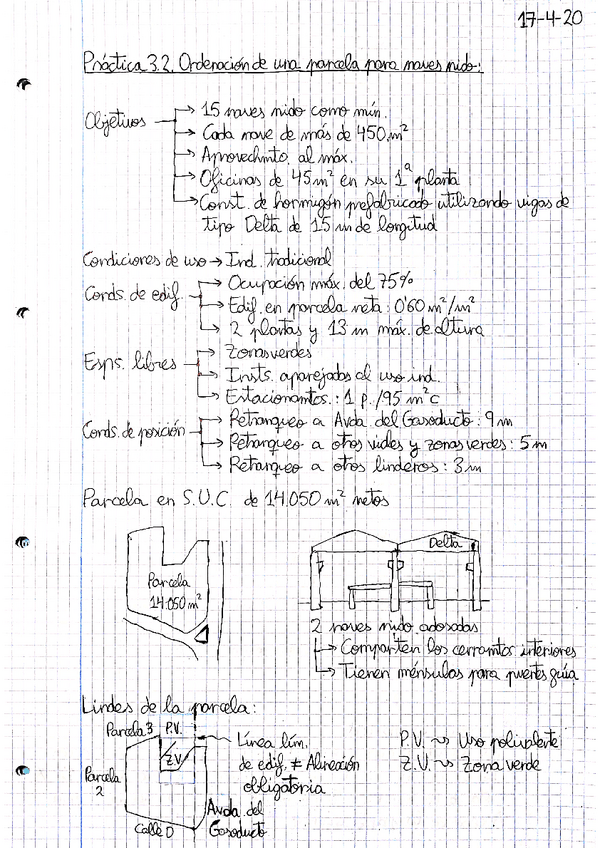 17-4-20
Práctica 3.2. Ordenación de una parcela para naves nido:
Objetivos → 15 naves nido como mín.
→ Cada nave de más de 450 m²
→ Aprovechmto. al máx.
→ Oficinas de 45 m² en su 1ª planta
→ Const. de hormigón prefabricado utilizando vigas de
tipo Delta de 15 m de longitud
Condiciones de uso → Ind. tradicional
Conds. de edif. → Ocupación máx. del 75%
→ Edif. en parcela neta: 0'60 m²/m²
→ 2 plantas y 13 m máx. de altura
Esps. libres → Zonas verdes
→ Insts. aparejadas al uso ind.
→ Estacionamtos.: 1 p./95 m²c
Conds. de posición → Retranqueo a Avda. del Gasoducto: 9 m
→ Retranqueo a otros viales y zonas verdes: 5 m
→ Retranqueo a otros linderos: 3 m
Parcela en S.U.C. de 14.050 m² netos
Parcela
14.050 m²
Delta
2 naves nido adosadas
→ Comparten los cerramtos. interiores
→ Tienen ménsulas para puentes grúa
Lindes de la parcela:
Parcela 3 P.V.
Z.V.
Parcela
2
Calle D
Avda. del
Gasoducto
Línea lím.
de edif. ≠ Alineación
obligatoria
P.V. ~> Uso polivalente
Z.V. ~> Zona verde